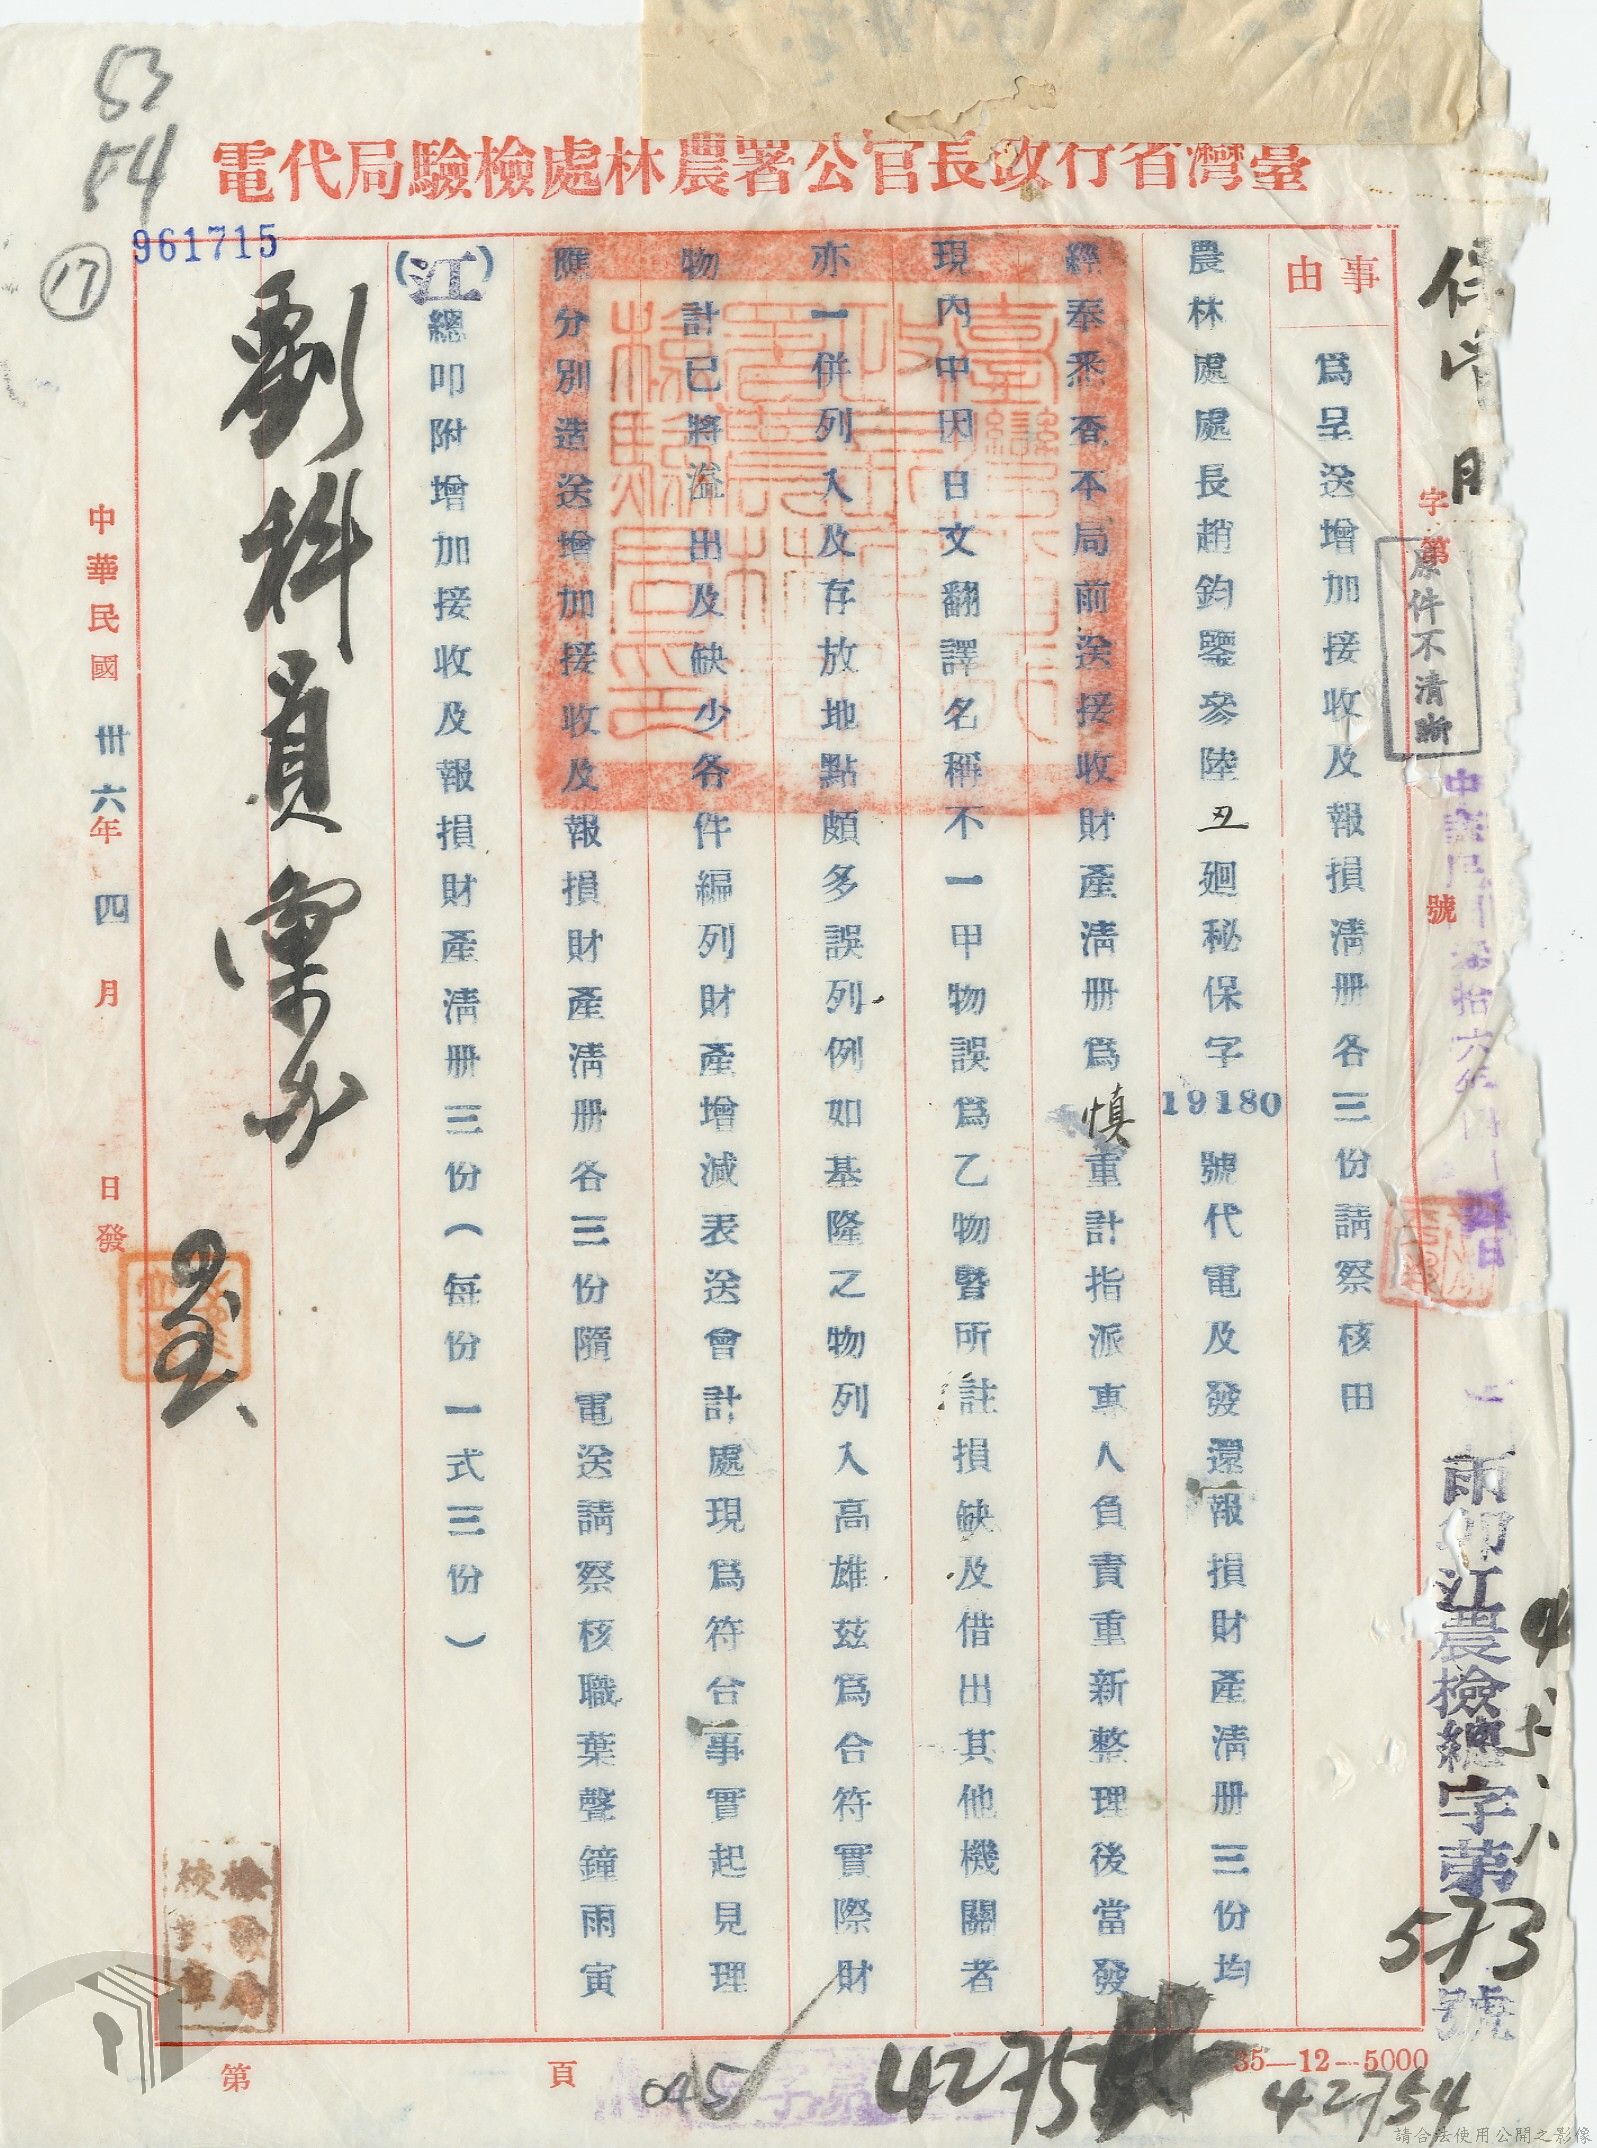 53
54
17
961715
臺灣省行政長官公署農林處檢驗局代電
保管股
字第 號
原件不清晰
中華民國叁拾六年四月四日
雨卯江農檢總字第573號
事由
爲呈送增加接收及報損清册各三份請察核由
農林處處長趙鈞鑒參陸丑廻秘保字19180號代電及發還報損財產清册三份均
經奉悉查本局前送接收財產清册爲慎重計指派專人負責重新整理後當發
現內中因日文翻譯名稱不一甲物誤爲乙物暨所註損缺及借出其他機關者
亦一併列入及存放地點頗多誤列例如基隆之物列入高雄茲爲合符實際財
物計已將溢出及缺少各件編列財產增減表送會計處現爲符合事實起見理
應分別造送增加接收及報損財產清册各三份隨電送請察核職葉聲鐘雨寅
(江)總叩附增加接收及報損財產清册三份(每份一式三份)
劉科員彙办
中華民國卅六年四月 日發
臺灣省行政長官公署農林處檢驗局印
檢驗局校對章
第 頁
045
4275
42754
35—12—5000
請合法使用公開之影像